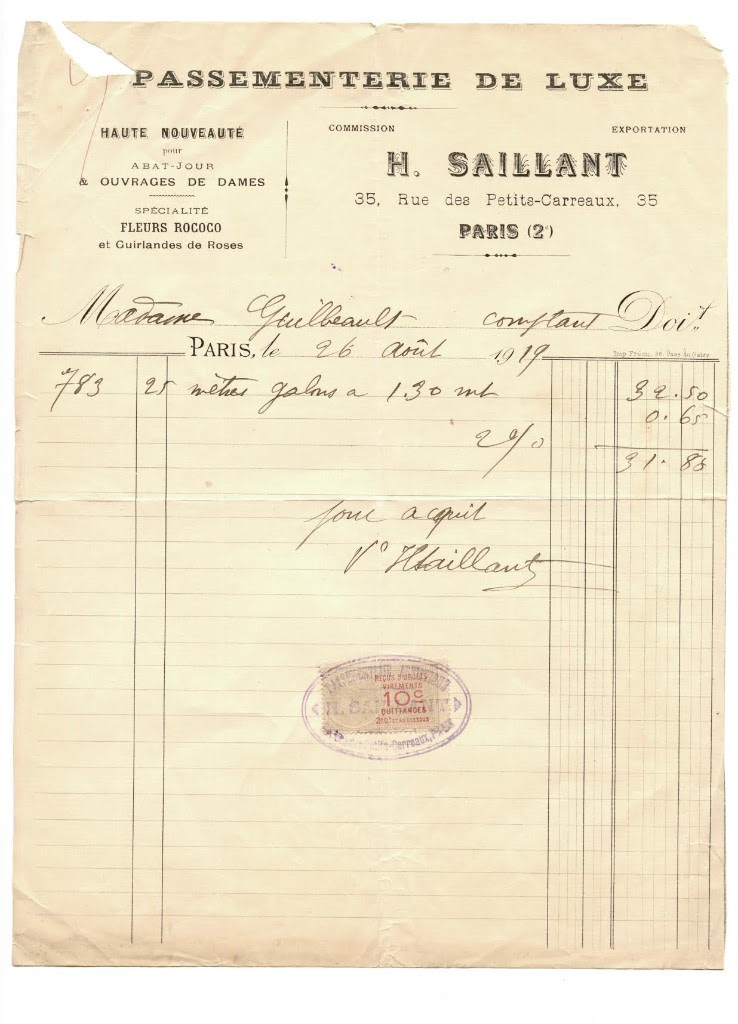 PASSEMENTERIE DE LUXE
HAUTE NOUVEAUTÉ
pour
ABAT-JOUR
& OUVRAGES DE DAMES
SPÉCIALITÉ
FLEURS ROCOCO
et Guirlandes de Roses
COMMISSION EXPORTATION
H. SAILLANT
35, Rue des Petits-Carreaux, 35
PARIS (2e)
Madame Guilbeault comptant Doit
PARIS, le 26 août 1919
783 25 mètres galons a 1.30 mt 32.50
2 % 0.65
31.85
pour acquit
Vo HSaillant
REÇUS D'OBJETS
VIREMENTS
10c
QUITTANCES
H. SAILLANT
Petits-Carreaux, PARIS